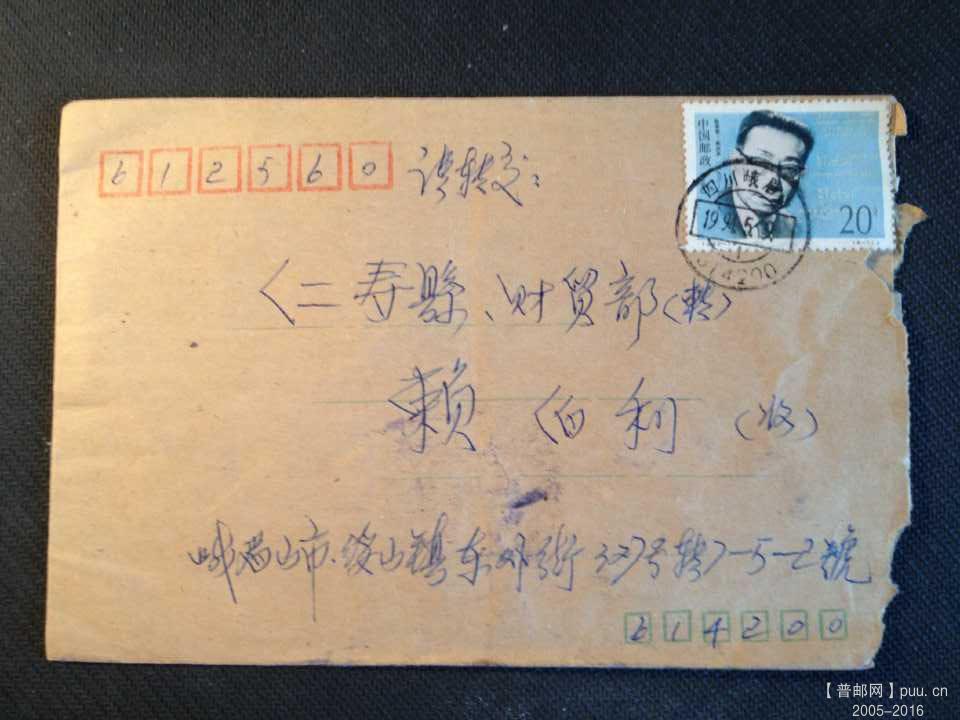 612560
请转交:
仁寿縣、财贸部(轉)
賴伯利(收)
峨眉山市.绥山镇东外街327号转7-5-2號
614200
中国邮政
20
四川峨眉
614200
【普邮网】puu.cn
2005-2016